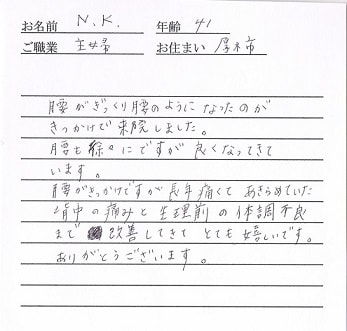 お名前 N.K. 年齢 41
ご職業 主婦 お住まい 厚木市
腰がぎっくり腰のようになったのが
きっかけで来院しました。
腰も徐々にですが良くなってきて
います。
腰がきっかけですが長年痛くてあきらめていた
背中の痛みと生理前の体調不良
まで改善してきてとても嬉しいです。
ありがとうございます。